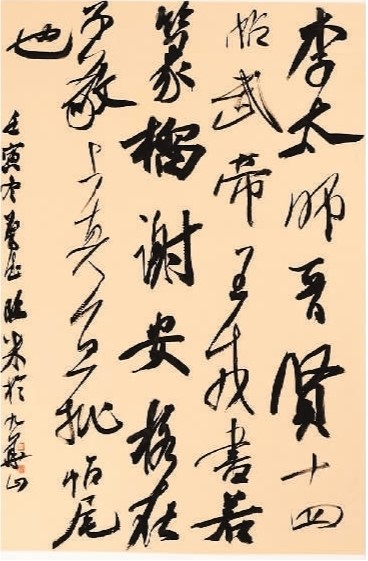 李太師晉賢十四
帖武帝王戎書若
篆籀謝安格在
子敬上真宜批帖尾
也
壬寅冬臨米於九華山